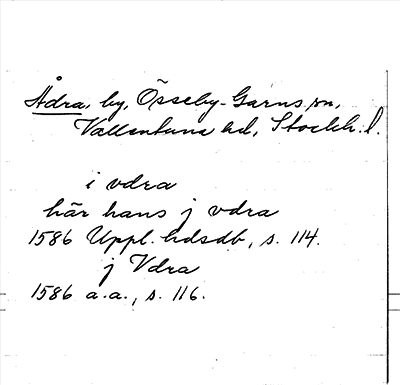 Ådra, by, Össeby-Garns sn,
Vallentuna hd, Stockh. l.
i vdra
här hans j vdra
1586 Uppl. hdsdb, s. 114.
j Vdra
1586 a.a., s. 116.